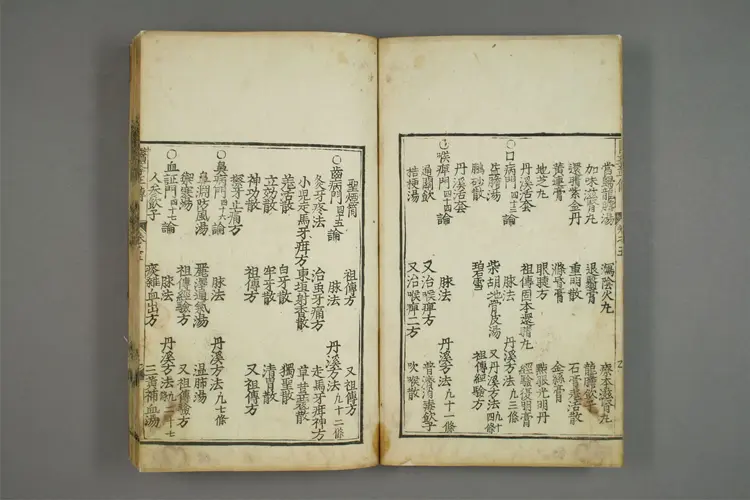 瀉陰火丸 療本滋腎丸
加味滋腎丸 退翳膏 龍膽飲子
還睛紫金丹 重明散 石膏羌活散
黃連膏 滌昏膏 金絲膏
地芝丸 眼睫方 光明丹
丹溪活套 祖傳固本還睛丸 經驗復明膏
〇口病門四十三論 脉法 丹溪方法九三條
柴胡地骨皮湯 又丹溪方法
鵬砂散 碧雪 祖傳經驗方
丹溪活套
〇喉痺門四十四論 脉法 丹溪方法九十一條
又治喉痺方 普濟消毒飲子
桔梗湯 又治喉痺二方 吹喉散
聖煙筒 祖傳方 又祖傳方
〇齒病門四十五論 脉法 丹溪方法九十二條
灸牙疼法 治虫牙痛方 走馬牙疳神方
小兒走馬牙疳方 東垣射香散 草荳蔻散
羗活散 白牙散 獨聖散
立效散 牢牙散 清胃散
神功散 祖傳方 又祖傳方
擦牙止痛方
〇鼻病門四十六論 脉法 丹溪方法九七條
鼻淵防風湯 麗澤通氣湯 溫肺湯
御寒湯 祖傳經驗方 又祖傳驗方
〇血証門四十七論 脉法 丹溪方法
人參飲子 血出方 三黃補血湯